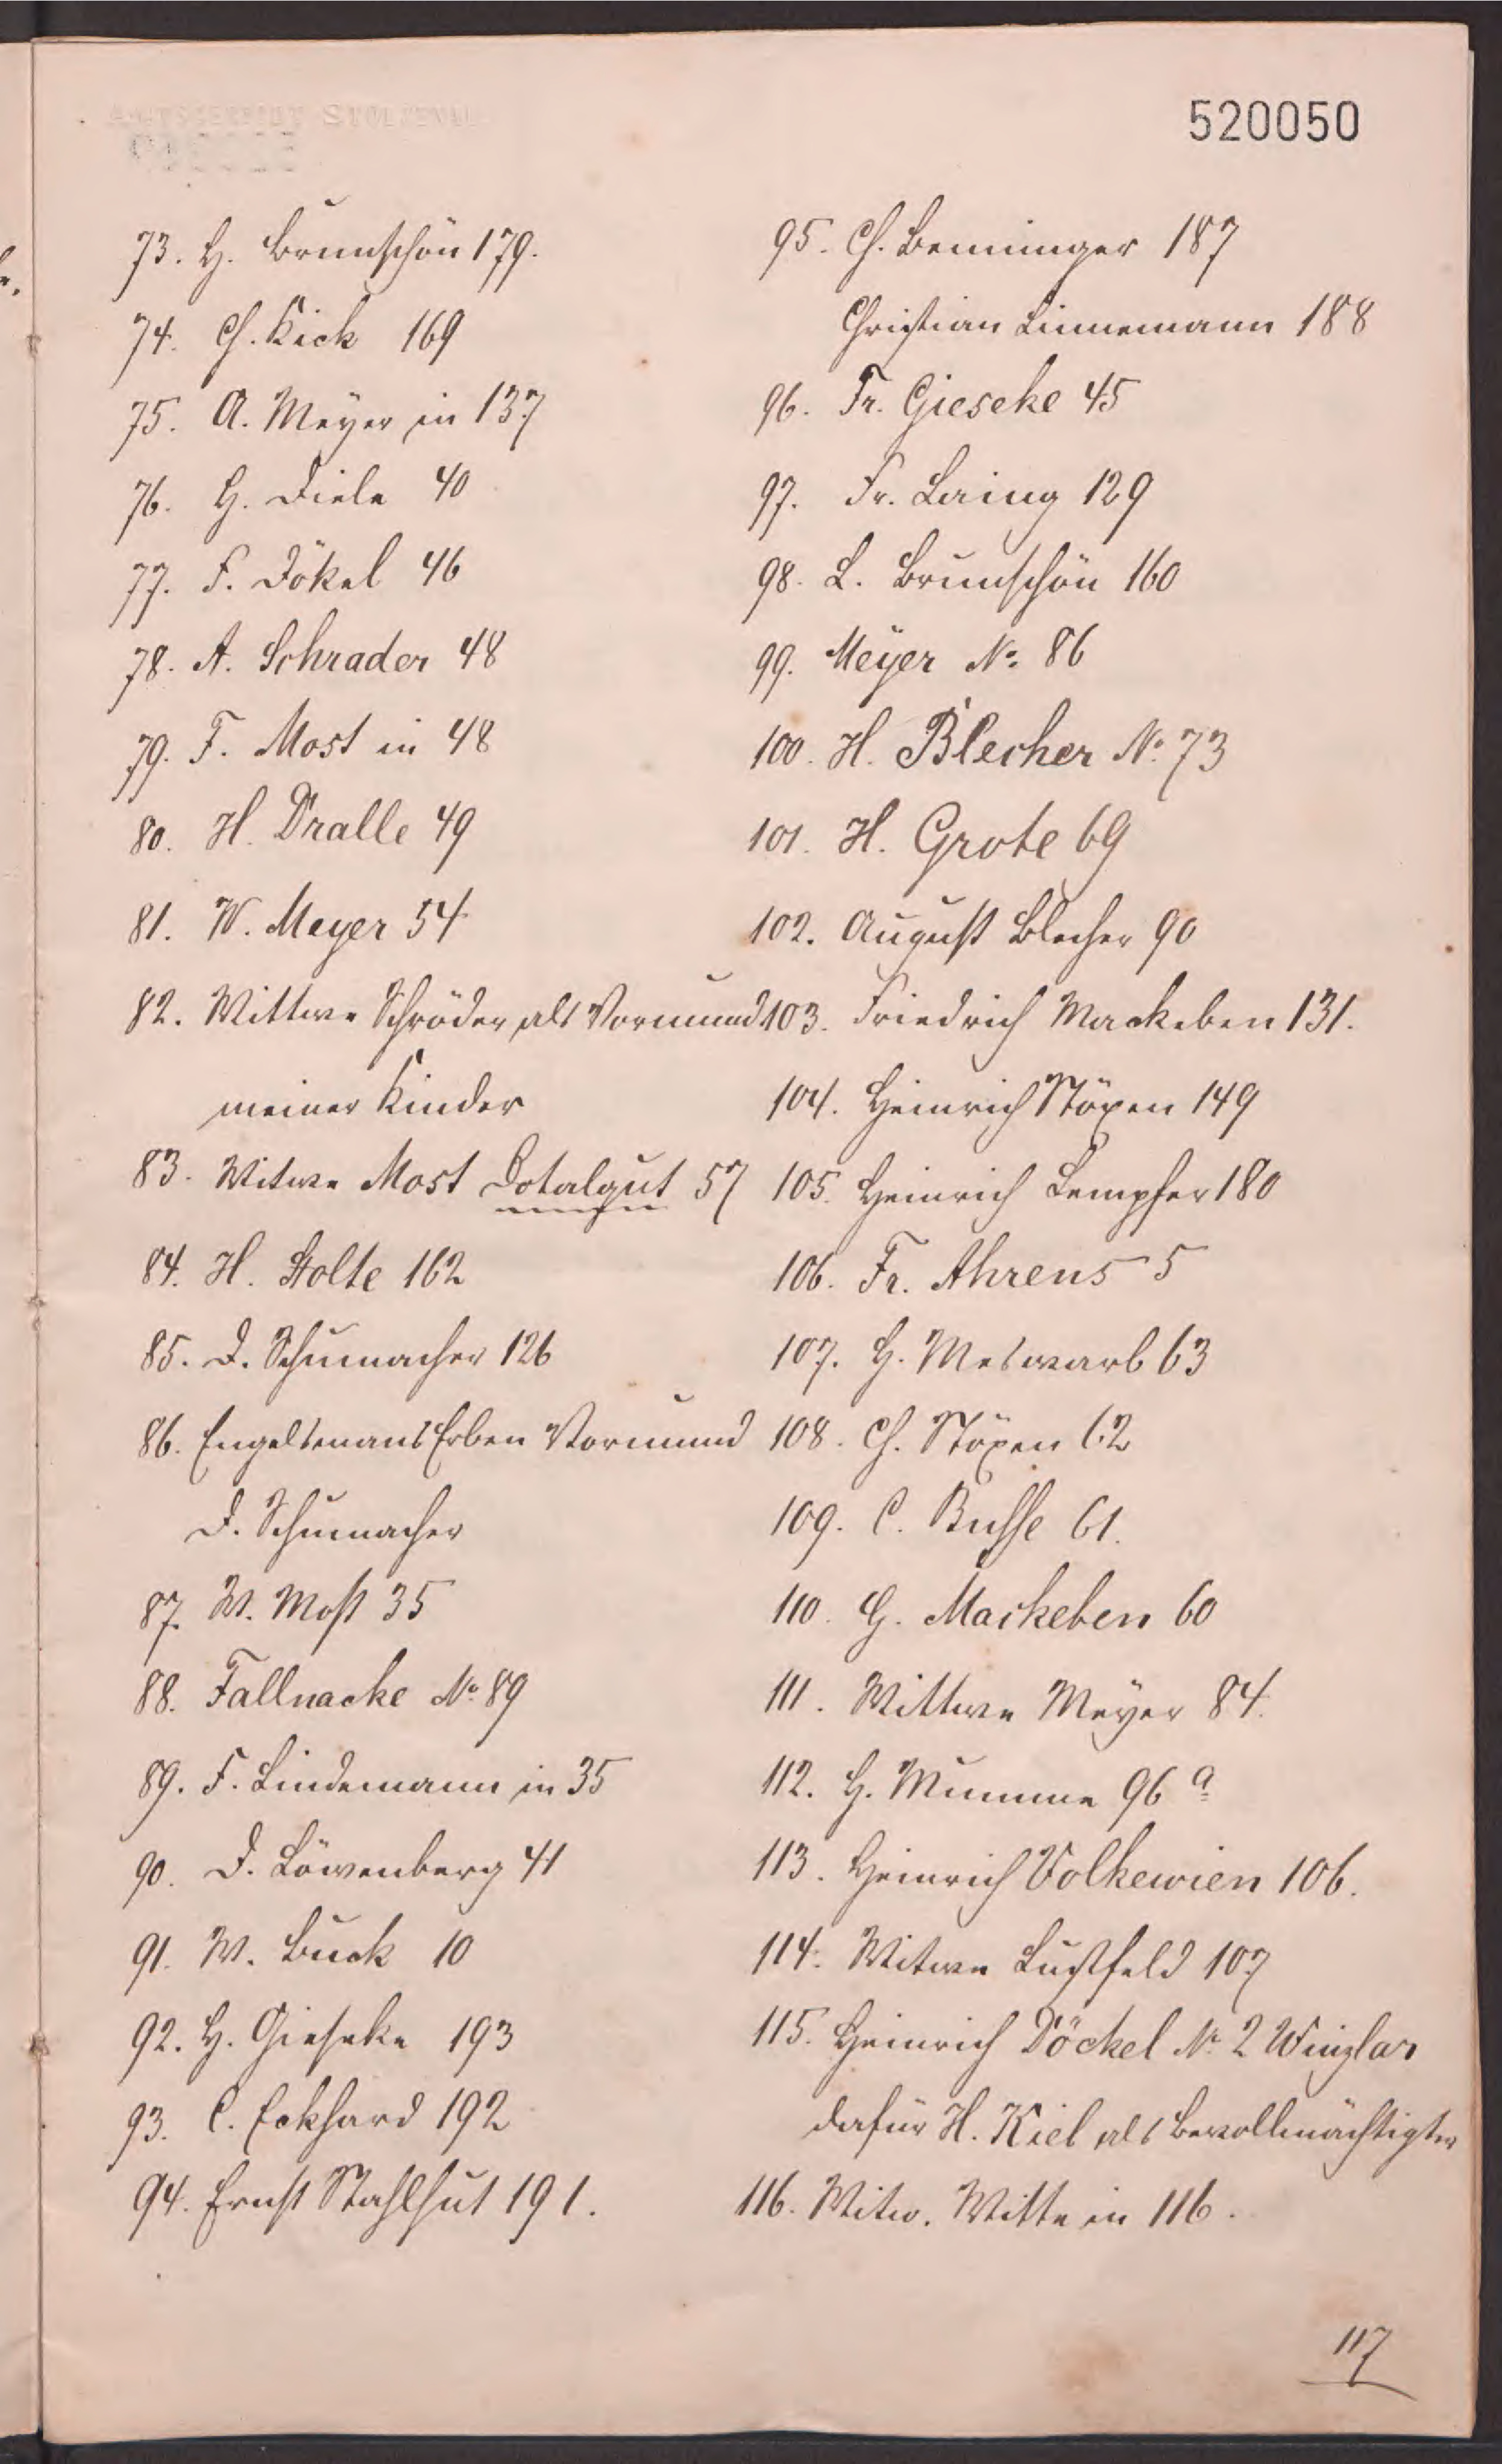 AMTSGERICHT STOLZENAU
520050
73. H. Brunschön 179.
74. Ch. Kick 169
75. A. Meyer in 137
76. H. Diele 40
77. F. Dökel 46
78. A. Schrader 48
79. F. Most in 48
80. H. Dralle 49
81. W. Meyer 54
82. Wittwe Schröder als Vormund
meiner Kinder
83. Witwe Most Dotalgut 57
84. H. Stolte 162
85. D. Schumacher 126
86. Engelkenans Erben Vormund
D. Schumacher
87. W. Most 35
88. Fallnacke No 89
89. F. Lindemann in 35
90. D. Löwenberg 41
91. W. Buck 10
92. H. Gieseke 193
93. C. Eckhard 192
94. Ernst Stahlhut 191.
95. Ch. Benninger 187
Christian Linnemann 188
96. Fr. Gieseke 45
97. Fr. Laing 129
98. L. Brunschön 160
99. Meyer No 86
100. H. Blecher No 73
101. H. Grote 69
102. August Blecher 90
103. Friedrich Mackeben 131.
104. Heinrich Stöxen 149
105. Heinrich Lempfer 180
106. Fr. Ahrens 5
107. H. Meswarb 63
108. Ch. Stöxen 62
109. C. Busse 61.
110. G. Mackeben 60
111. Wittwe Meyer 84.
112. H. Mumme 96 a
113. Heinrich Volkewien 106.
114. Witwe Lustfeld 107
115. Heinrich Döckel No 2 Winzlar
dafür H. Kiel als Bevollmächtigter
116. Witw. Witte in 116.
117